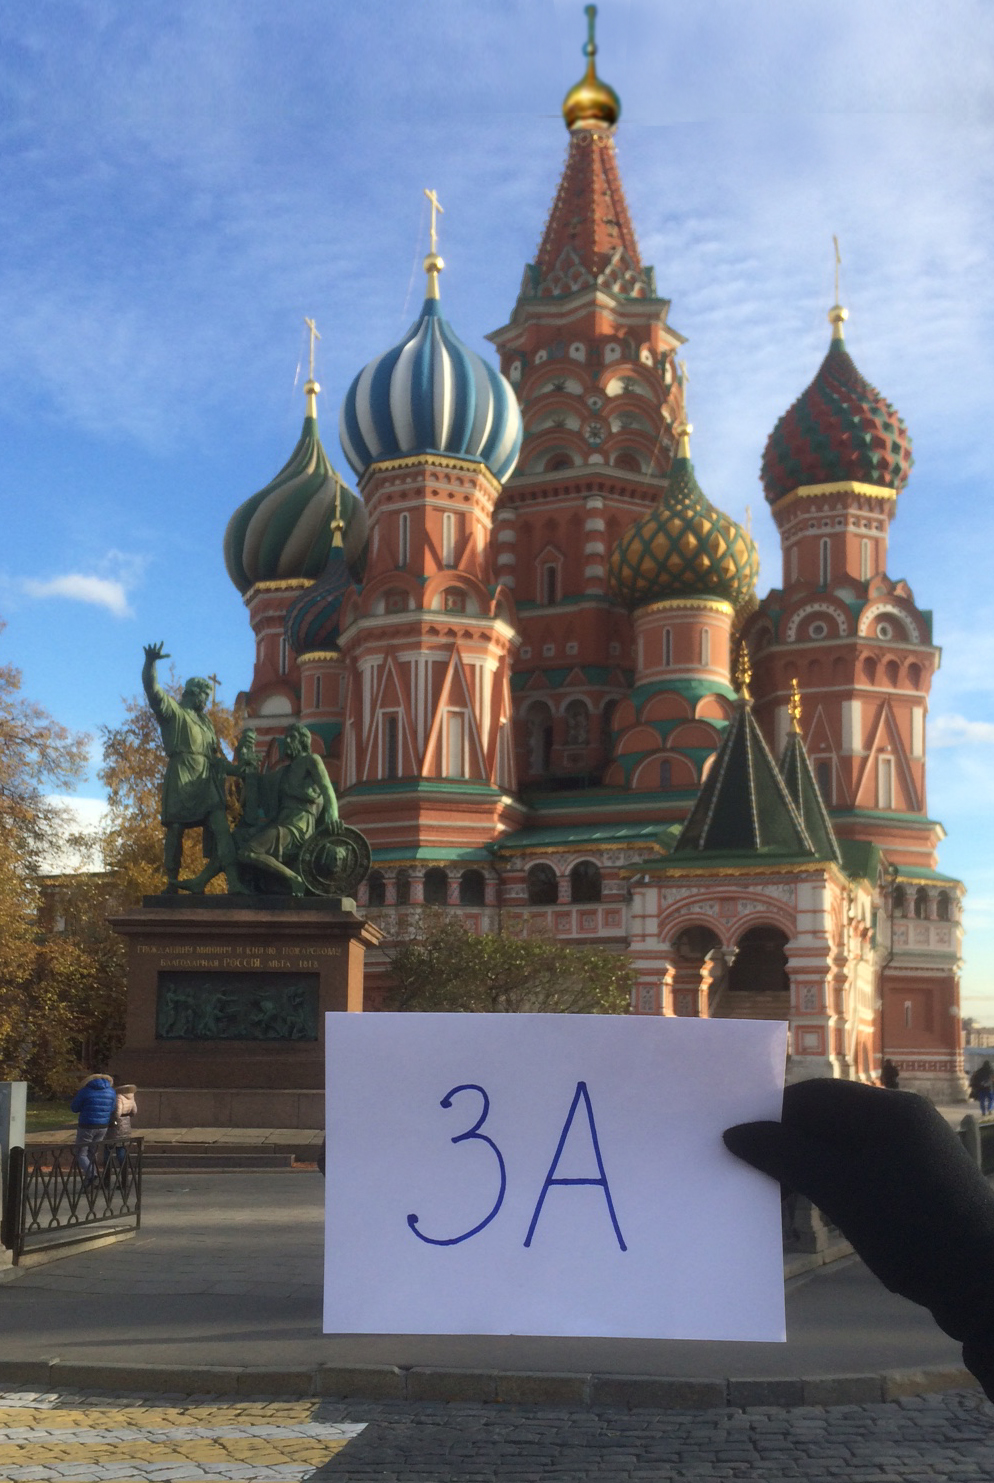 ГРАЖДАНИНУ МИНИНУ И КНЯЗЮ ПОЖАРСКОМУ
БЛАГОДАРНАЯ РОССІЯ. ЛѢТА 1818
ЗА